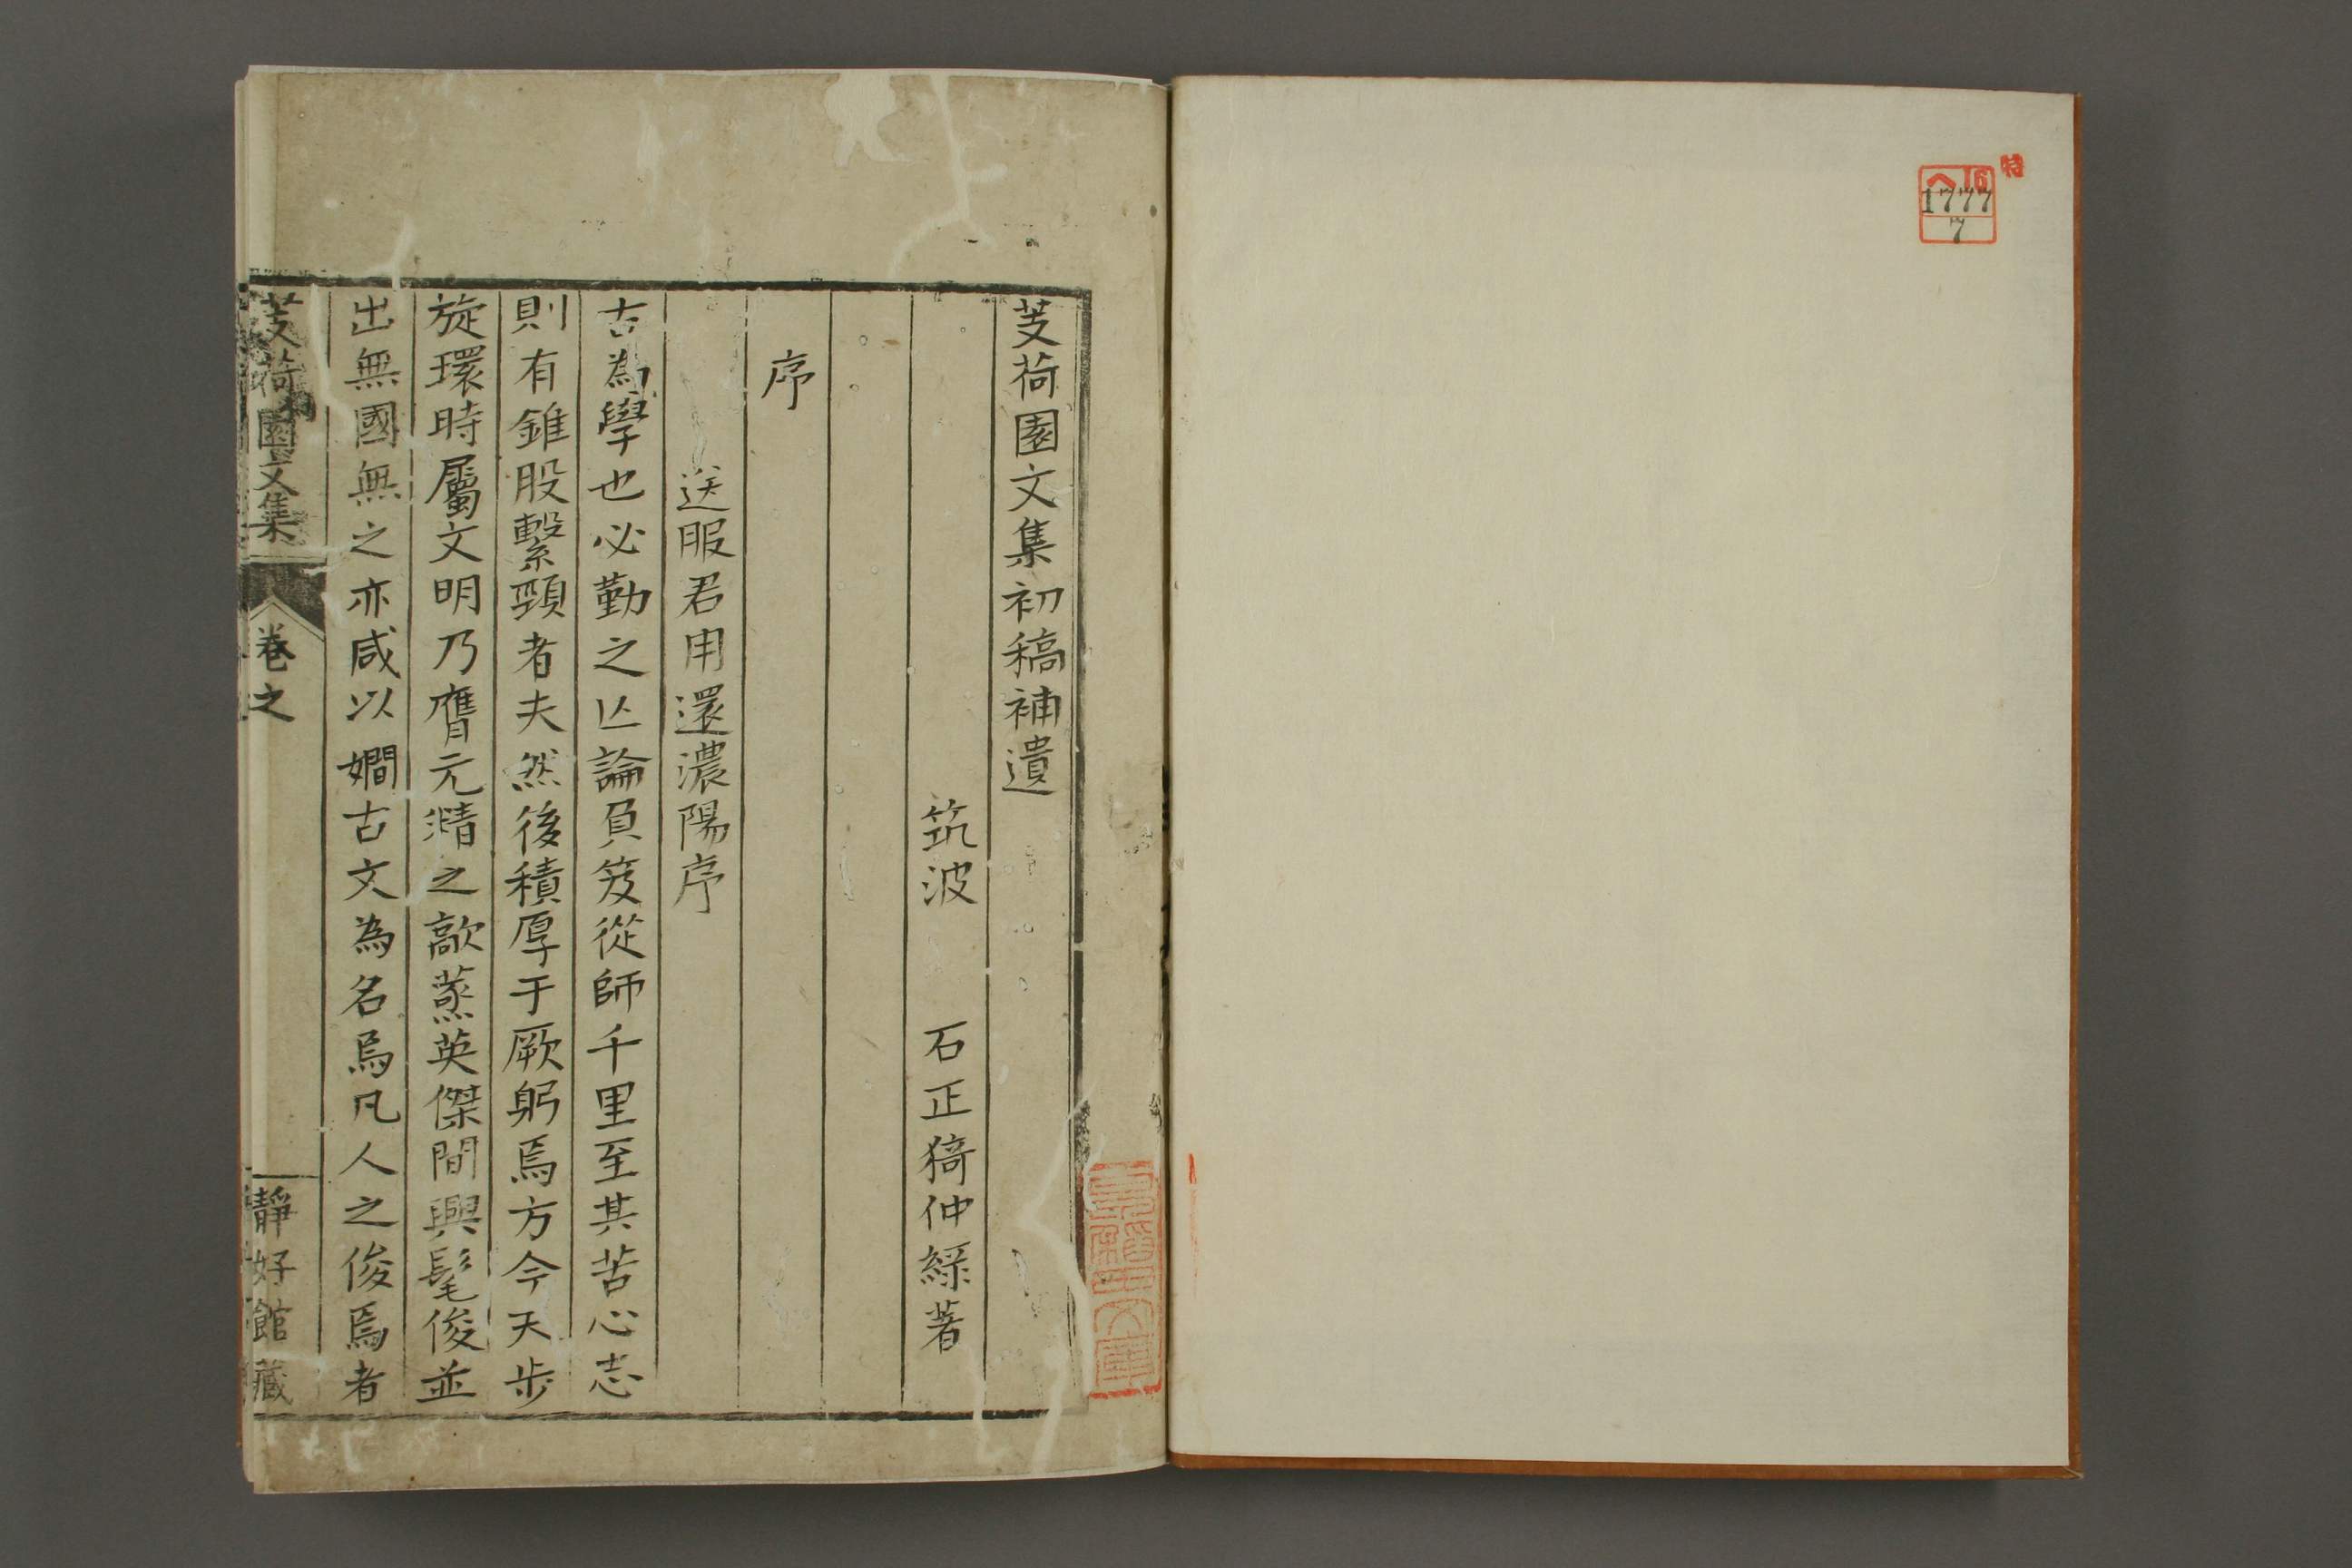 特
1777
7
芰荷園文集初稿補遺
筑波 石正猗仲緑著
序
送服君用還濃陽序
古為學也必勤之亾論負笈從師千里至其苦心志
則有錐股繫頸者夫然後積厚于厥躬焉方今天步
旋環時屬文明乃膺元精之歊蒸英傑間興髦俊並
出無國無之亦咸以嫺古文為名焉凡人之俊焉者
芰荷園文集 卷之 靜好館藏